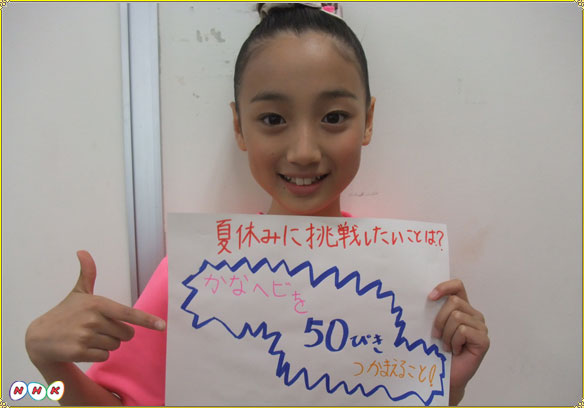 夏休みに挑戦したいことは?
かなヘビを
50ぴき
つかまえること!
NHK